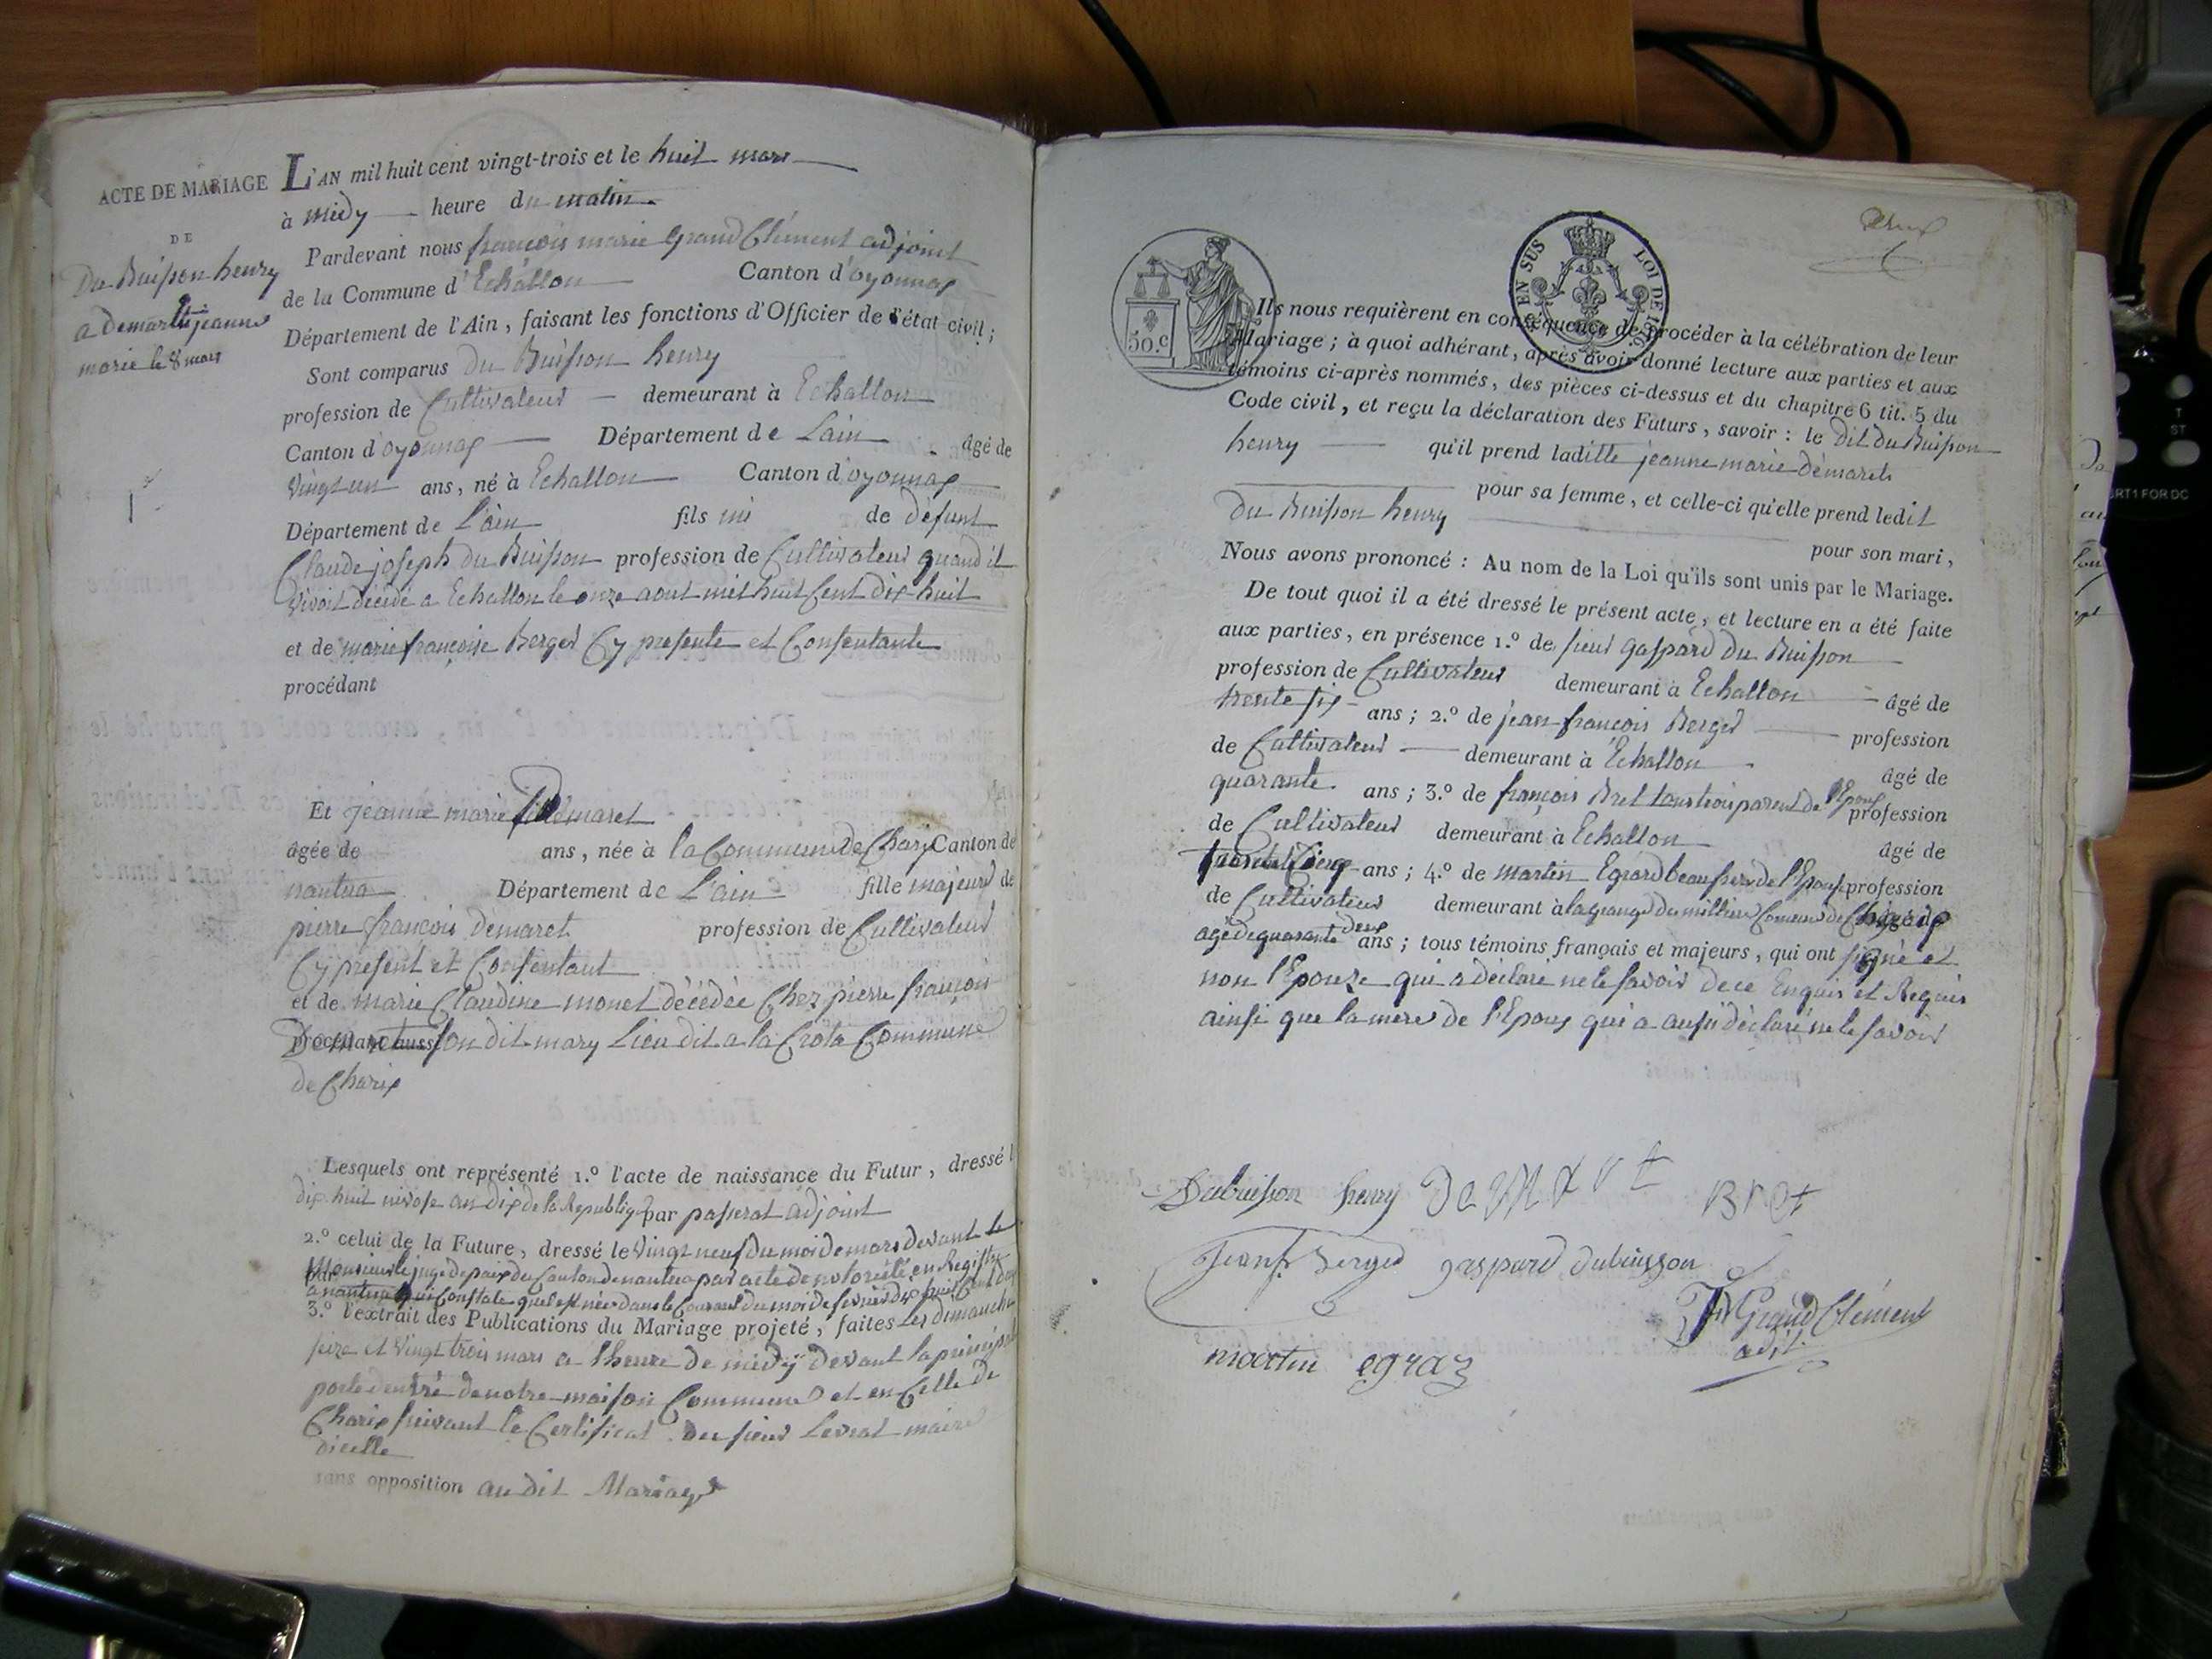 ACTE DE MARIAGE
DE
Du Buisson henry
a demaret jeanne
marie le 8 mars
L'AN mil huit cent vingt-trois et le huit mars
à midy heure du matin
Pardevant nous françois marie Grand Clément adjoint
de la Commune d'Echallon Canton d'oyonnax
Département de l'Ain, faisant les fonctions d'Officier de l'état civil;
Sont comparus du Buisson henry
profession de Cultivateur demeurant à Echallon
Canton d'oyonnax Département de Lain âgé de
vingt un ans, né à Echallon Canton d'oyonnax
Département de L'ain fils de défunt
Claude joseph du Buisson profession de Cultivateur quand il
vivoit décédé a Echallon le onze aout mil huit Cent dix huit
et de marie françoise Berger Cy presente et Consentante
procédant
Et jeanne marie demaret
âgée de ans, née à la Commune de Charix Canton de
nantua Département de L'ain fille majeure de
pierre françois demaret profession de Cultivateur
Cy present et Consentant
et de marie Claudine monet décédée Chez pierre françois
Demaret son dit mary Lieu dit a la Crota Commune
de Charix
Lesquels ont représenté 1.º l'acte de naissance du Futur, dressé l
dix huit nivose an dix de la Republiq par passerat adjoint
2.º celui de la Future, dressé le vingt neuf du moi de mars devant le
Monsieur le juge de paix du Canton de nantua par acte de notoriété en Registré
a nantua qui Constate quel est née dans le Courant du moi de fevrier dix huit Cent
3.º l'extrait des Publications du Mariage projeté, faites Les dimanche
seize et vingt trois mars a l'heure de midy devant la principal
porte dentré de notre maison Commune et en Celle de
Charix suivant le Certificat du sieur Levrat maire
dicelle
sans opposition au dit Mariage
50.c
EN SUS LOI DE
Ils nous requièrent en conséquence de procéder à la célébration de leur
Mariage; à quoi adhérant, après avoir donné lecture aux parties et aux
témoins ci-après nommés, des pièces ci-dessus et du chapitre 6 tit. 5 du
Code civil, et reçu la déclaration des Futurs, savoir: le dit du Buisson
henry qu'il prend laditte jeanne marie démaret
pour sa femme, et celle-ci qu'elle prend ledit
du Buisson henry
pour son mari,
Nous avons prononcé: Au nom de la Loi qu'ils sont unis par le Mariage.
De tout quoi il a été dressé le présent acte, et lecture en a été faite
aux parties, en présence 1.º de sieur gaspard du Buisson
profession de Cultivateur demeurant à Echallon âgé de
trente six ans; 2.º de jean françois Berger profession
de Cultivateur demeurant à Echallon âgé de
quarante ans; 3.º de françois Bret tous trois parent de l'Epoux profession
de Cultivateur demeurant à Echallon âgé de
ans; 4.º de martin Egrard beau frere de l'Epouse profession
de Cultivateur demeurant à la grange du millieu Comune de
agé de quarante deux ans; tous témoins français et majeurs, qui ont signé et
non l'Epouze qui a déclaré ne le savoir de ce Enquis et Requis
ainsi que la mere de l'Epoux qui a aussi déclaré ne le savoir
Dubuisson henry Demaret Bret
Jean f. Berger gaspard dubuisson
Grand Clément
adjt.
martin egraz